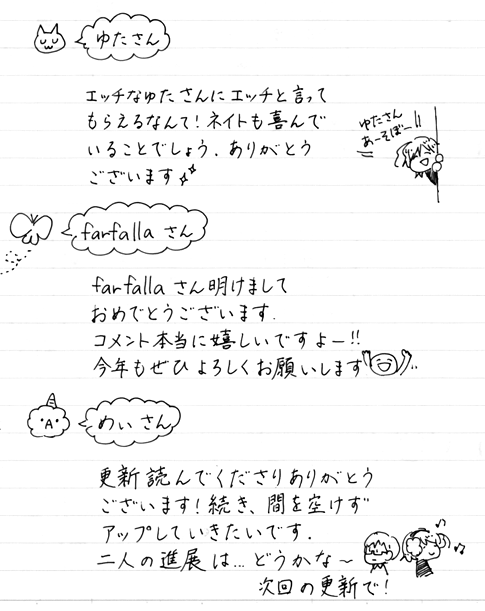 ゆたさん
エッチなゆたさんにエッチと言って
もらえるなんて!ネイトも喜んで
いることでしょう.ありがとう
ございます
ゆたさん
あーそぼー!!
farfallaさん
farfallaさん明けまして
おめでとうございます.
コメント本当に嬉しいですよー!!
今年もぜひよろしくお願いします
めぃさん
更新読んでくださりありがとう
ございます!続き、間を空けず
アップしていきたいです.
二人の進展は…どうかな~
次回の更新で!